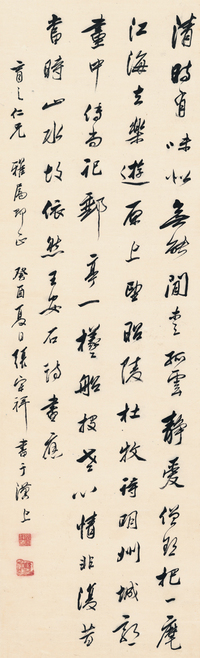 清時有味似無能閒愛孤雲靜愛僧欲把一麾
江海去樂遊原上望昭陵杜牧詩明州城郭
畫中傳尚記鄞亭一艤船投老心情非復昔
當時山水故依然王安石詩書應
育之仁兄雅屬即正癸酉夏日張宗祥書于漢上